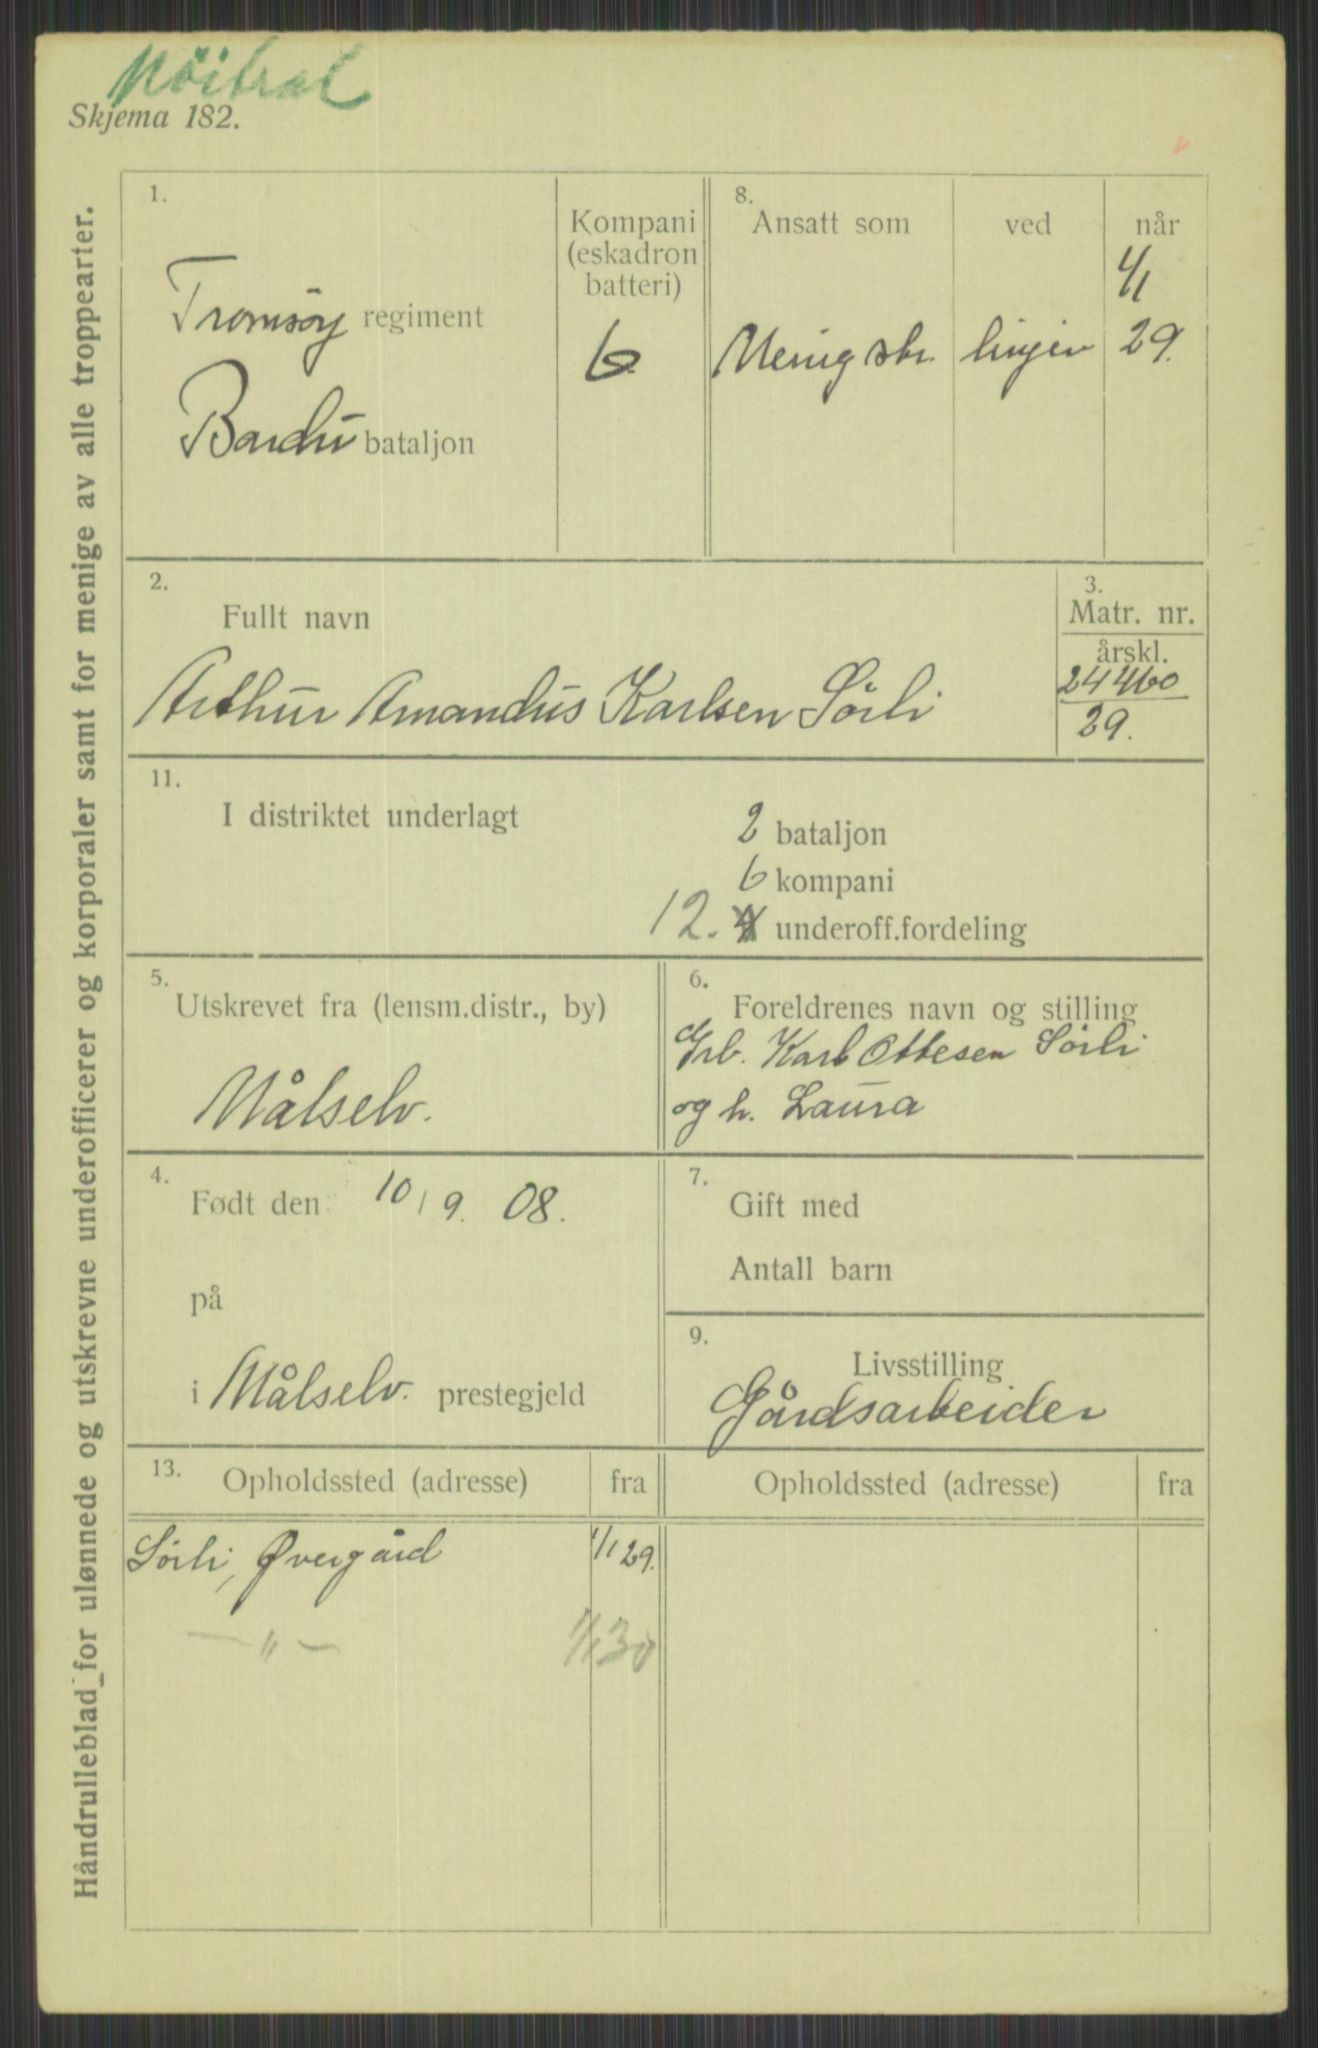 Nöitral
Skjema 182.
Håndrulleblad for ulønnede og utskrevne underofficerer og korporaler samt for menige av alle troppearter.
1.
Tromsöy regiment
Bardu bataljon
Kompani
(eskadron
batteri)
6
8.
Ansatt som
ved
når
1/1
Menig str.
linjen
29.
2.
Fullt navn
Arthur Amandus Karlsen Sörli
3.
Matr. nr.
årskl.
24460
29.
11.
I distriktet underlagt
2 bataljon
6 kompani
12. 4 underoff.fordeling
5.
Utskrevet fra (lensm.distr., by)
Målselv.
6.
Foreldrenes navn og stilling
Grb. Karl Ottesen Sörli
og h. Laura
4.
Født den 10/9. 08.
på
i Målselv. prestegjeld
7.
Gift med
Antall barn
9.
Livsstilling
Gårdsarbeider
13.
Opholdssted (adresse) fra
Opholdssted (adresse) fra
Sörli, Øvergård 1/1 29.
— " — 1/1 30